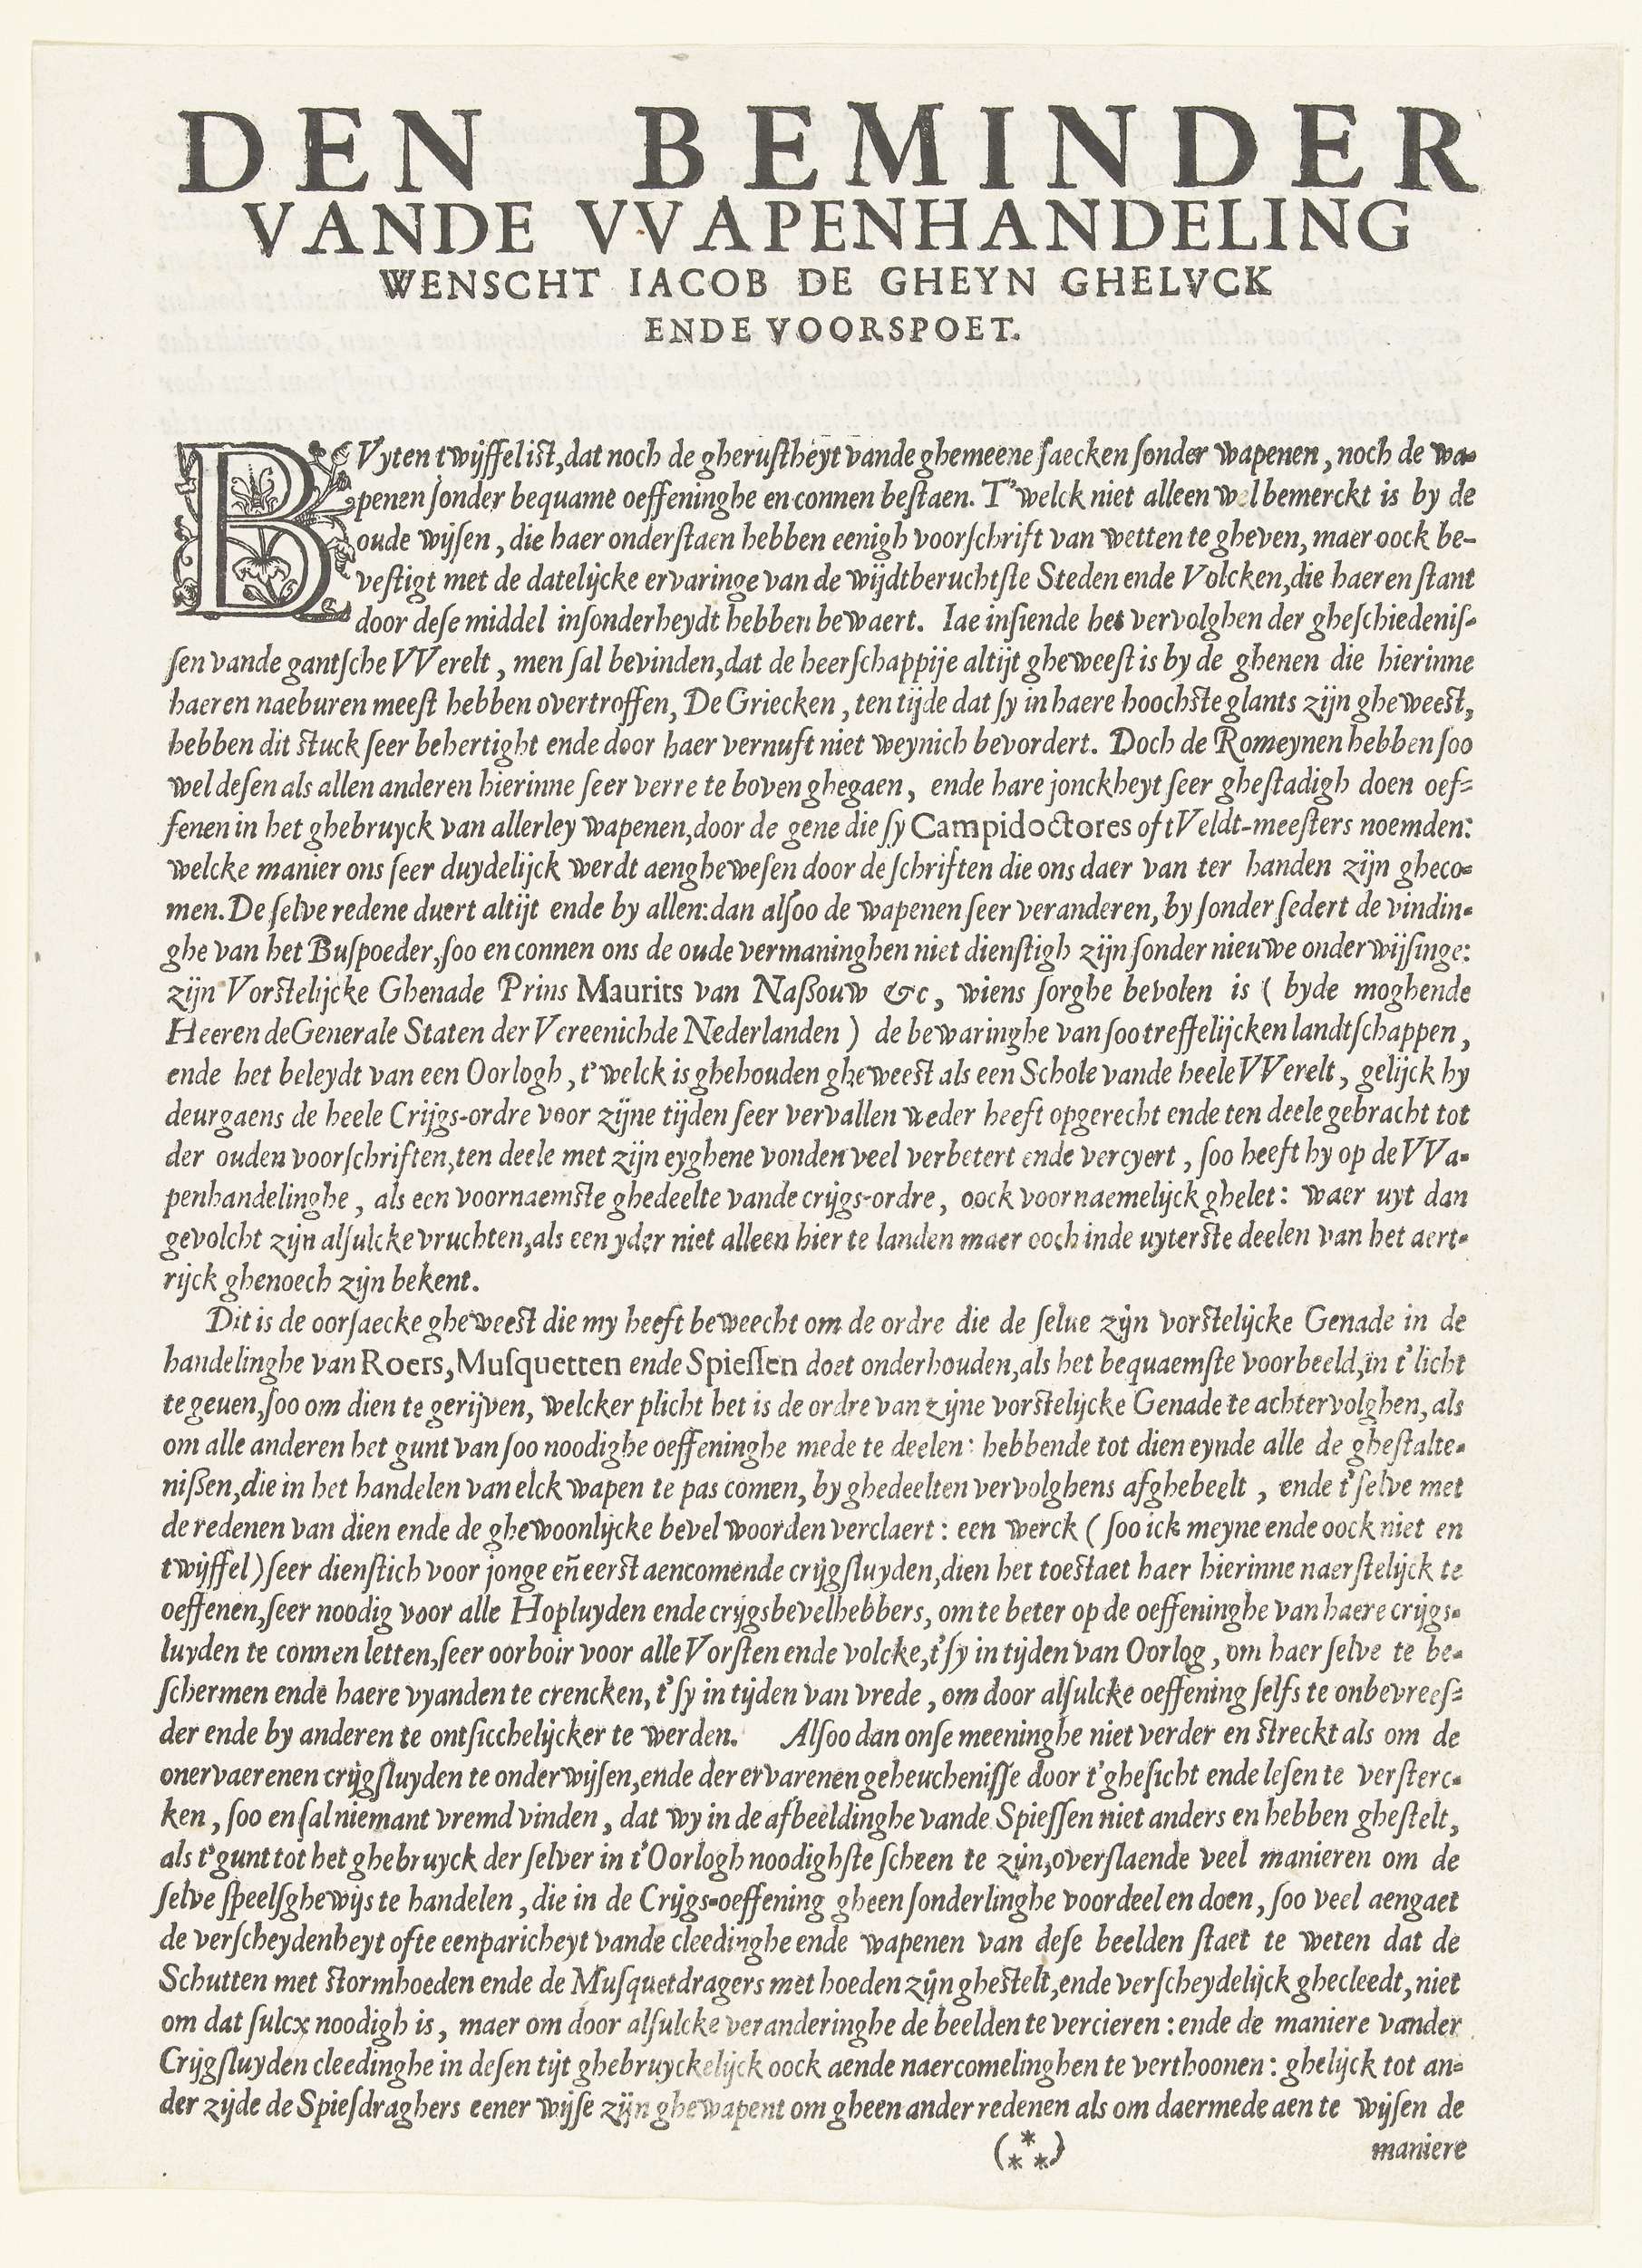 DEN BEMINDER
VANDE VVAPENHANDELING
WENSCHT IACOB DE GHEYN GHELVCK
ENDE VOORSPOET.
BVyten twijffel ist, dat noch de gherustheyt vande ghemeene saecken sonder wapenen, noch de wa-
penen sonder bequame oeffeninghe en connen bestaen. T'welck niet alleen wel bemerckt is by de
oude wijsen, die haer onderstaen hebben eenigh voorschrift van wetten te gheven, maer oock be-
vestigt met de datelijcke ervaringe van de wijdtberuchtste Steden ende Volcken, die haeren stant
door dese middel insonderheydt hebben bewaert. Iae insiende het vervolghen der gheschiedenis-
sen vande gantsche VVerelt, men sal bevinden, dat de heerschappije altijt gheweest is by de ghenen die hierinne
haeren naeburen meest hebben overtroffen, De Griecken, ten tijde dat sy in haere hoochste glants zijn gheweest,
hebben dit stuck seer behertight ende door haer vernuft niet weynich bevordert. Doch de Romeynen hebben soo
wel desen als allen anderen hierinne seer verre te boven ghegaen, ende hare jonckheyt seer ghestadigh doen oef-
fenen in het ghebruyck van allerley wapenen, door de gene die sy Campidoctores oft Veldt-meesters noemden:
welcke manier ons seer duydelijck werdt aenghewesen door de schriften die ons daer van ter handen zijn gheco-
men. De selve redene duert altijt ende by allen: dan alsoo de wapenen seer veranderen, by sonder sedert de vindin-
ghe van het Buspoeder, soo en connen ons de oude vermaninghen niet dienstigh zijn sonder nieuwe onderwijsinge:
zijn Vorstelijcke Ghenade Prins Maurits van Naßouw &c, wiens sorghe bevolen is ( byde moghende
Heeren de Generale Staten der Vereenichde Nederlanden ) de bewaringhe van soo treffelijcken landtschappen,
ende het beleydt van een Oorlogh, t'welck is ghehouden gheweest als een Schole vande heele VVerelt, gelijck hy
deurgaens de heele Crijgs-ordre voor zijne tijden seer vervallen weder heeft opgerecht ende ten deele gebracht tot
der ouden voorschriften, ten deele met zijn eyghene vonden veel verbetert ende vercyert, soo heeft hy op de VVa-
penhandelinghe, als een voornaemste ghedeelte vande crijgs-ordre, oock voornaemelijck ghelet: waer uyt dan
gevolcht zijn alsulcke vruchten, als een yder niet alleen hier te landen maer ooch inde uyterste deelen van het aert-
rijck ghenoech zijn bekent.
Dit is de oorsaecke gheweest die my heeft beweecht om de ordre die de selue zijn vorstelijcke Genade in de
handelinghe van Roers, Musquetten ende Spiessen doet onderhouden, als het bequaemste voorbeeld, in t'licht
te geuen, soo om dien te gerijven, welcker plicht het is de ordre van zijne vorstelijcke Genade te achtervolghen, als
om alle anderen het gunt van soo noodighe oeffeninghe mede te deelen: hebbende tot dien eynde alle de ghestalte-
nißen, die in het handelen van elck wapen te pas comen, by ghedeelten vervolghens afghebeelt, ende t'selve met
de redenen van dien ende de ghewoonlijcke bevel woorden verclaert: een werck ( soo ick meyne ende oock niet en
twijffel ) seer dienstich voor jonge eñ eerst aencomende crijgsluyden, dien het toestaet haer hierinne naerstelijck te
oeffenen, seer noodig voor alle Hopluyden ende crijgsbevelhebbers, om te beter op de oeffeninghe van haere crijgs-
luyden te connen letten, seer oorboir voor alle Vorsten ende volcke, t'sy in tijden van Oorlog, om haer selve te be-
schermen ende haere vyanden te crencken, t'sy in tijden van vrede, om door alsulcke oeffening selfs te onbevrees-
der ende by anderen te ontsicchelijcker te werden. Alsoo dan onse meeninghe niet verder en streckt als om de
onervaerenen crijgsluyden te onderwijsen, ende der ervarenen geheuchenisse door t'ghesicht ende lesen te versterc-
ken, soo en sal niemant vremd vinden, dat wy in de afbeeldinghe vande Spiessen niet anders en hebben ghestelt,
als t'gunt tot het ghebruyck der selver in t'Oorlogh noodighste scheen te zijn, overslaende veel manieren om de
selve speelsghewijs te handelen, die in de Crijgs-oeffening gheen sonderlinghe voordeel en doen, soo veel aengaet
de verscheydenheyt ofte eenparicheyt vande cleedinghe ende wapenen van dese beelden staet te weten dat de
Schutten met stormhoeden ende de Musquetdragers met hoeden zijn ghestelt, ende verscheydelijck ghecleedt, niet
om dat sulcx noodigh is, maer om door alsulcke veranderinghe de beelden te vercieren: ende de maniere vander
Crijgsluyden cleedinghe in desen tijt ghebruyckelijck oock aende naercomelinghen te verthoonen: ghelijck tot an-
der zijde de Spiesdraghers eener wijse zijn ghewapent om gheen ander redenen als om daermede aen te wijsen de
(***) maniere